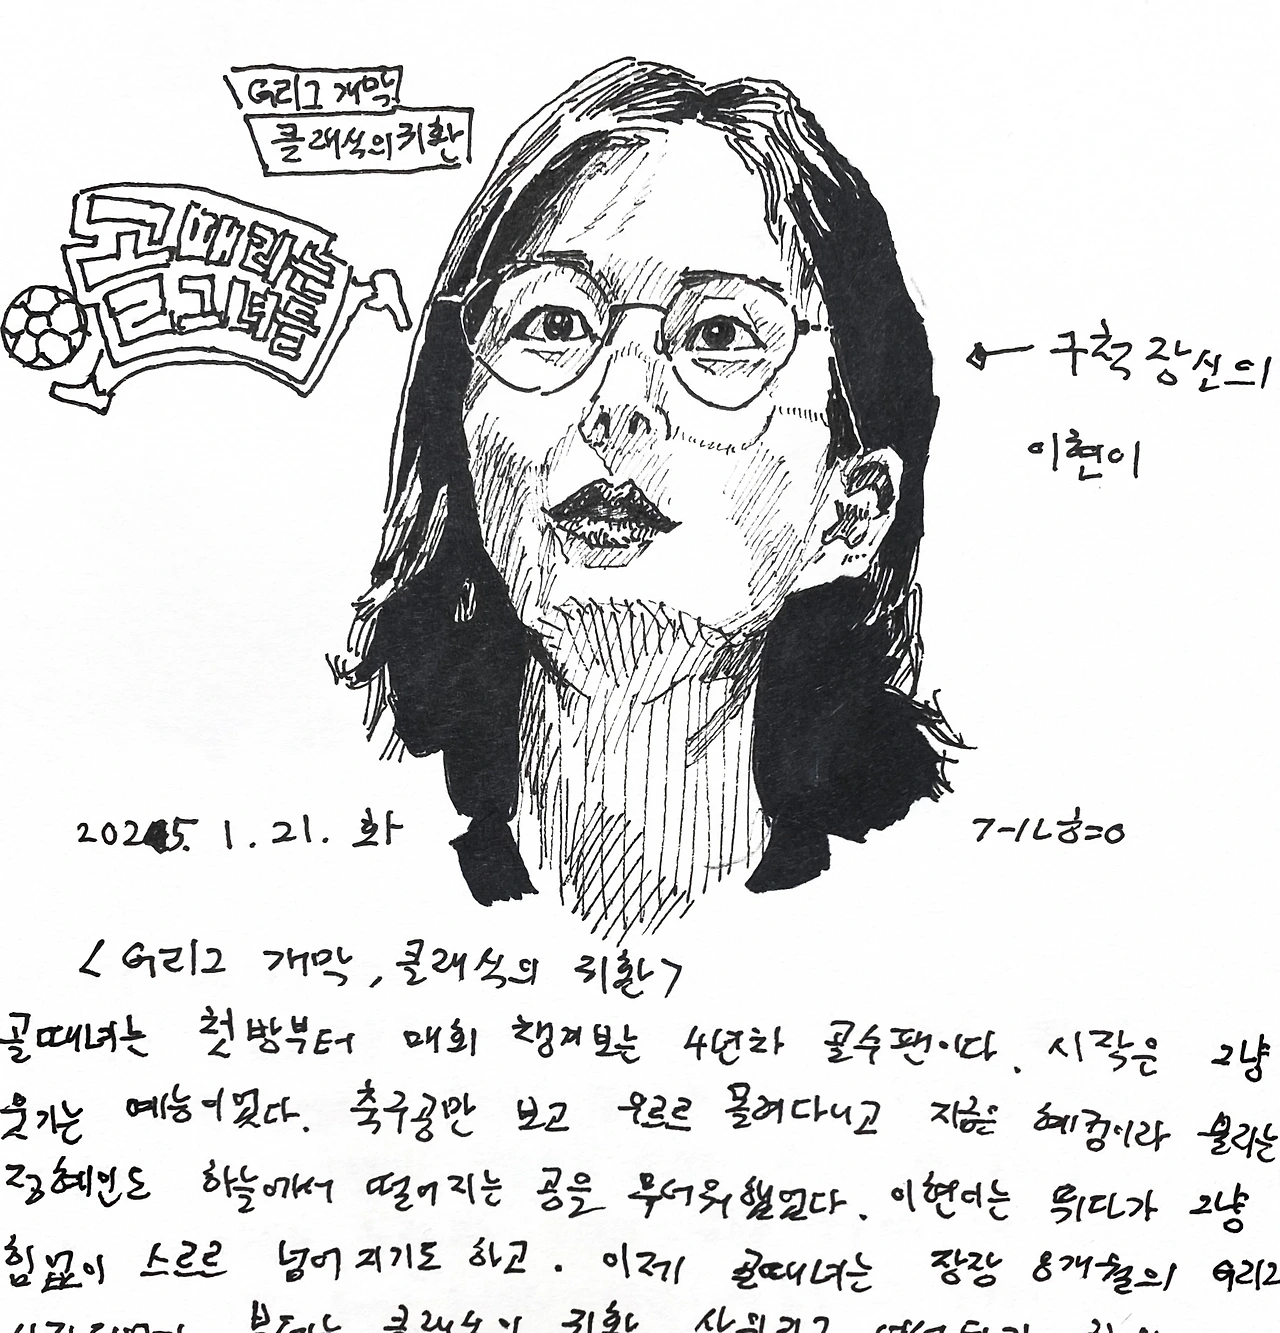 G리그 개막
클래식의 귀환
골때리는
그녀들
구척장신의
이현이
2025. 1. 21. 화
<G리그 개막, 클래식의 귀환>
골때녀는 첫방부터 매회 챙겨보는 4년차 골수팬이다. 시작은 그냥
웃기는 예능이었다. 축구공만 보고 우르르 몰려다니고 지금은 혜컴이라 불리는
정혜인도 하늘에서 떨어지는 공을 무서워했었다. 이현이는 뛰다가 그냥
힘없이 스르르 넘어지기도 하고. 이제 골때녀는 장장 8개월의 G리그
클래식의 귀환